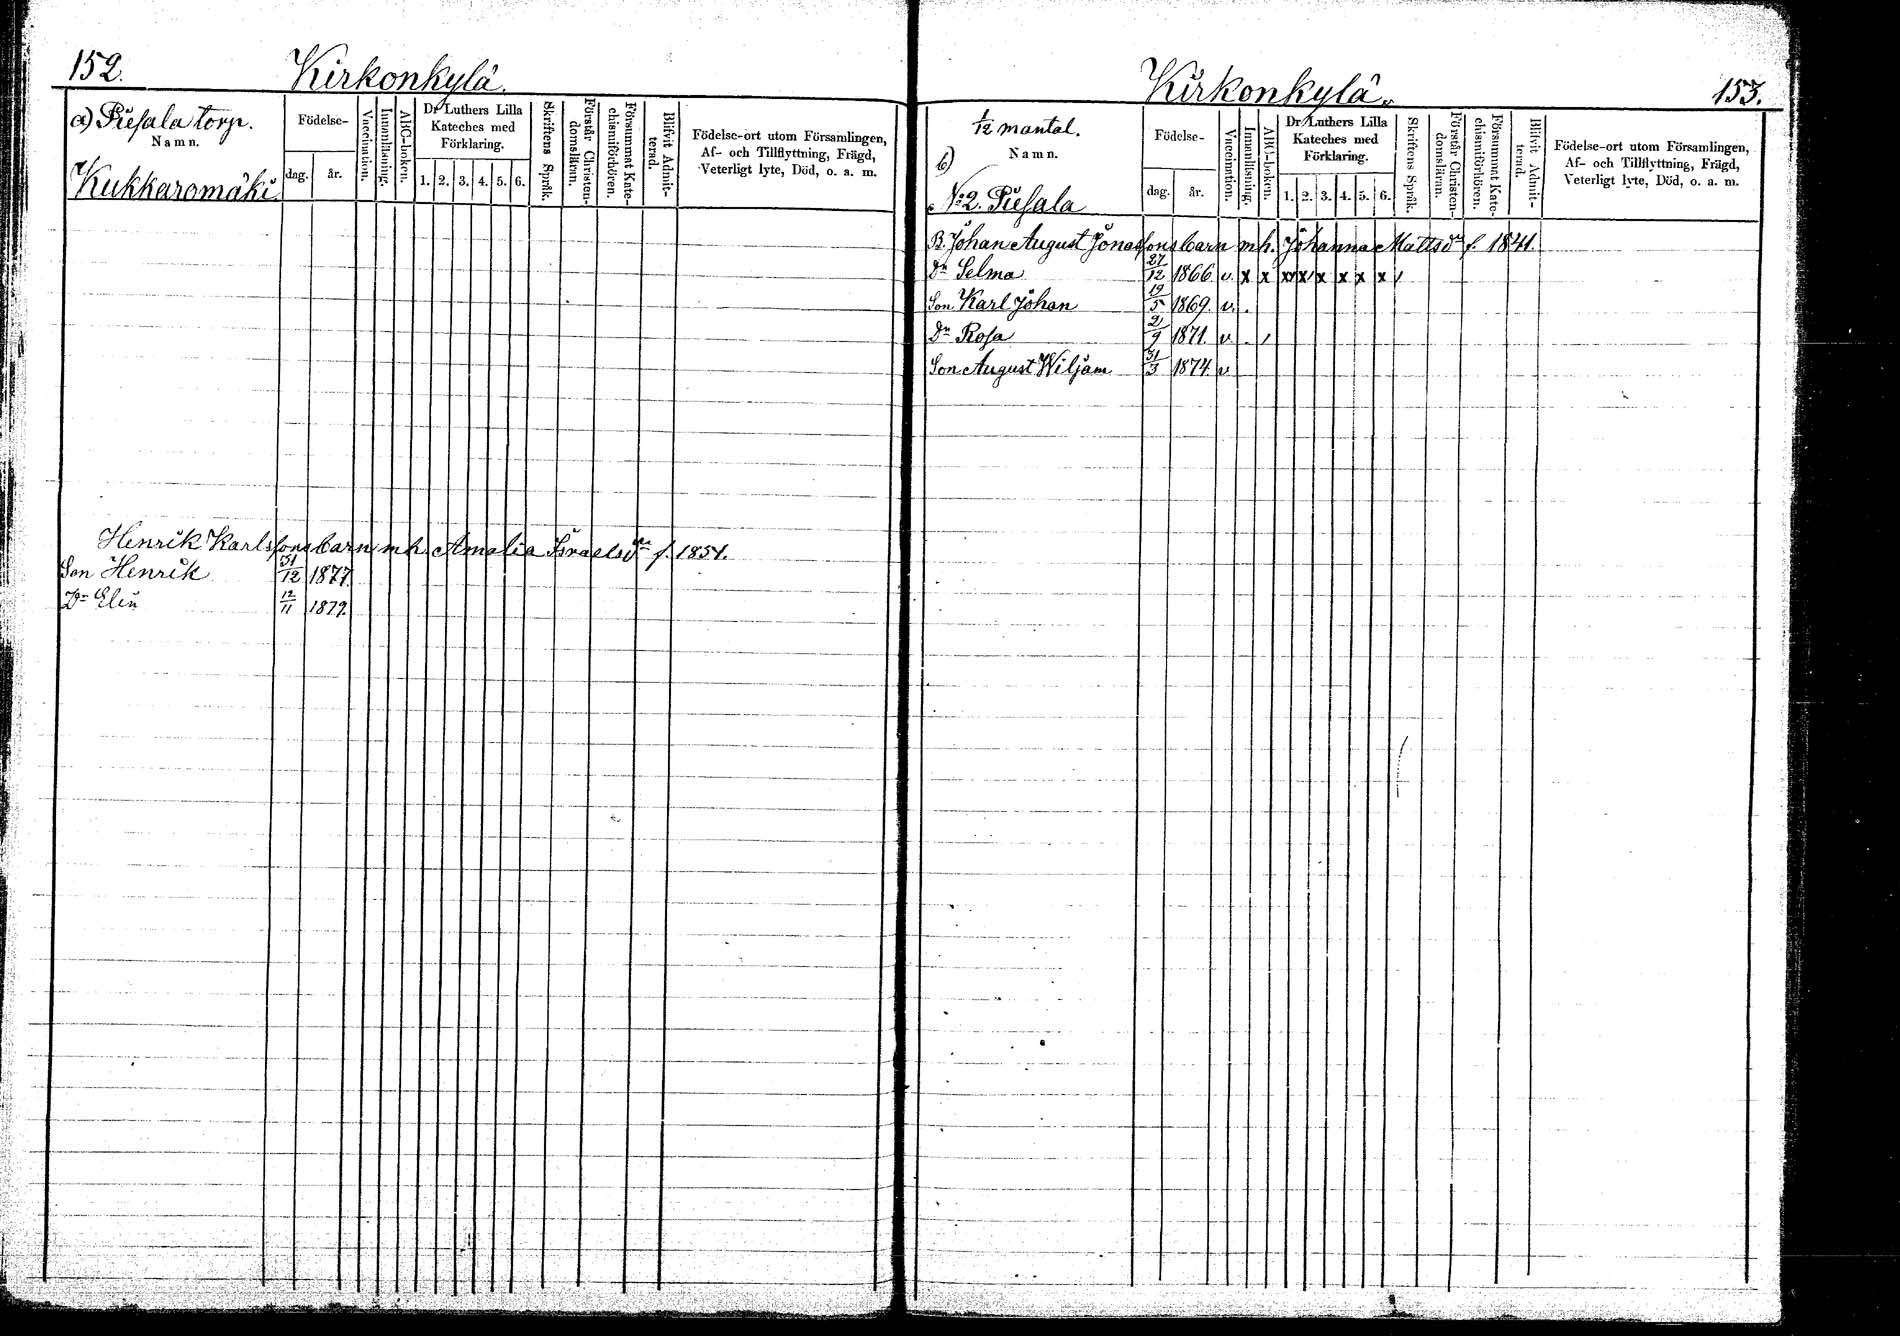 152.
Kirkonkylä.
a) Piesala torp.
Namn.
Kukkaromäki.
Födelse-
dag. år.
Vaccination.
Innanläsning.
ABC-boken.
Dr Luthers Lilla
Kateches med
Förklaring.
1. 2. 3. 4. 5. 6.
Skriftens Språk.
Förstår Christen-
domsläran.
Försummat Kate-
chismiförhören.
Blifvit Admit-
terad.
Födelse-ort utom Församlingen,
Af- och Tillflyttning, Frägd,
Veterligt lyte, Död, o. a. m.
Henrik Karlssons barn m h. Amalia Israelsdr f. 1854.
Son Henrik 31/12 1877.
Dr Elin 12/11 1879.
Kirkonkylä.
153.
1/12 mantal.
b)
Namn.
No 2. Piesala
Födelse-
dag. år.
Vaccination.
Innanläsning.
ABC-boken.
Dr Luthers Lilla
Kateches med
Förklaring.
1. 2. 3. 4. 5. 6.
Skriftens Språk.
Förstår Christen-
domsläran.
Försummat Kate-
chismiförhören.
Blifvit Admit-
terad.
Födelse-ort utom Församlingen,
Af- och Tillflyttning, Frägd,
Veterligt lyte, Död, o. a. m.
B. Johan August Jonassons barn m h. Johanna Mattsdr f. 1841.
Dr Selma 27/12 1866 v. x x x x x x x x
Son Karl Johan 19/5 1869. v.
Dr Rosa 2/9 1871. v.
Son August Wiljam 31/3 1874. v